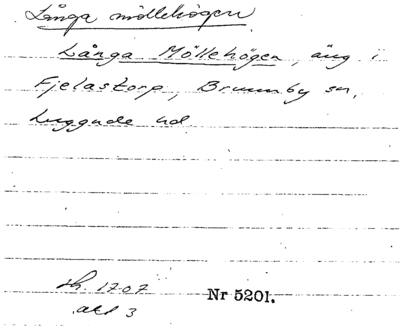 Långa möllehögen
Långa Möllehögen, äng i
Fjelastorp, Brunnby sn,
Luggude hd.
sk. 1707
Nr 5201.
akt 3